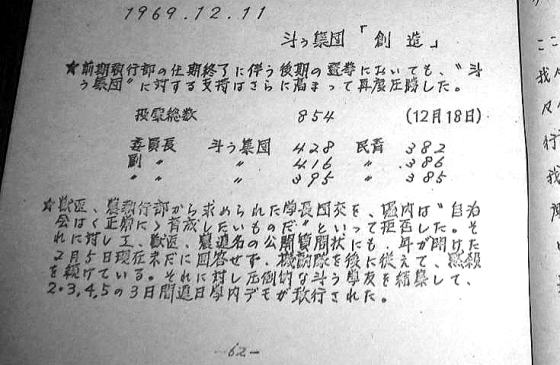 1969.12.11
斗う集団「創造」
★前期執行部の任期終了に伴う後期の選挙においても、“斗
う集団”に対する支持はさらに高まって再度圧勝した。
投票総数 854 (12月18日)
委員長 斗う集団 428 民青 382
副〃 〃 416 〃 386
〃 〃 395 〃 385
★獣医、農執行部から求められた学長団交を、堀内は“自治
会はく正常に〉育成したいものだ”といって拒否した。そ
れに対し工、獣医、農連名の公開質問状にも、年が開けた
2月5日現在未だに回答せず、機動隊を後に従えて、黙殺
を続けている。それに対し圧倒的な斗う學友を結集して、
2.3,4,5の3日間連日学内デモが敢行された。
-62-